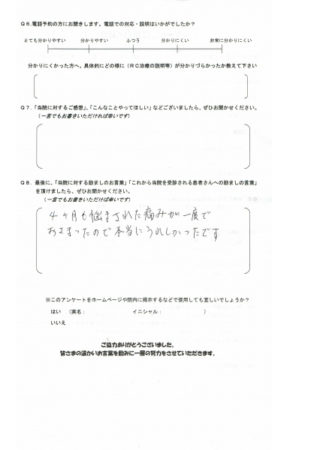 Q6.電話予約の方にお聞きします。電話での対応・説明はいかがでしたか？
とても分かりやすい　分かりやすい　ふつう　分かりにくい　非常に分かりにくい
分かりにくかった方へ、具体的にどの様に（RC治療の説明等）が分かりづらかったか教えて下さい
Q7.「当院に対するご感想」、「こんなことやってほしい」などございましたら、ぜひお聞かせください。
（一言でもお書きいただければ幸いです）
Q8.最後に、「当院に対する励ましのお言葉」「これから当院を受診される患者さんへの励ましの言葉」
を頂けましたら、ぜひお聞かせください。
（一言でもお書きいただければ幸いです）
4ヶ月も悩まされた痛みが一度で
おさまったので本当にうれしかったです
※このアンケートをホームページや院内に掲示するなどで使用しても宜しいでしょうか？
はい　（実名：　イニシャル：　）
いいえ
ご協力ありがとうございました。
皆さまの温かいお言葉を励みに一層の努力をさせていただきます。